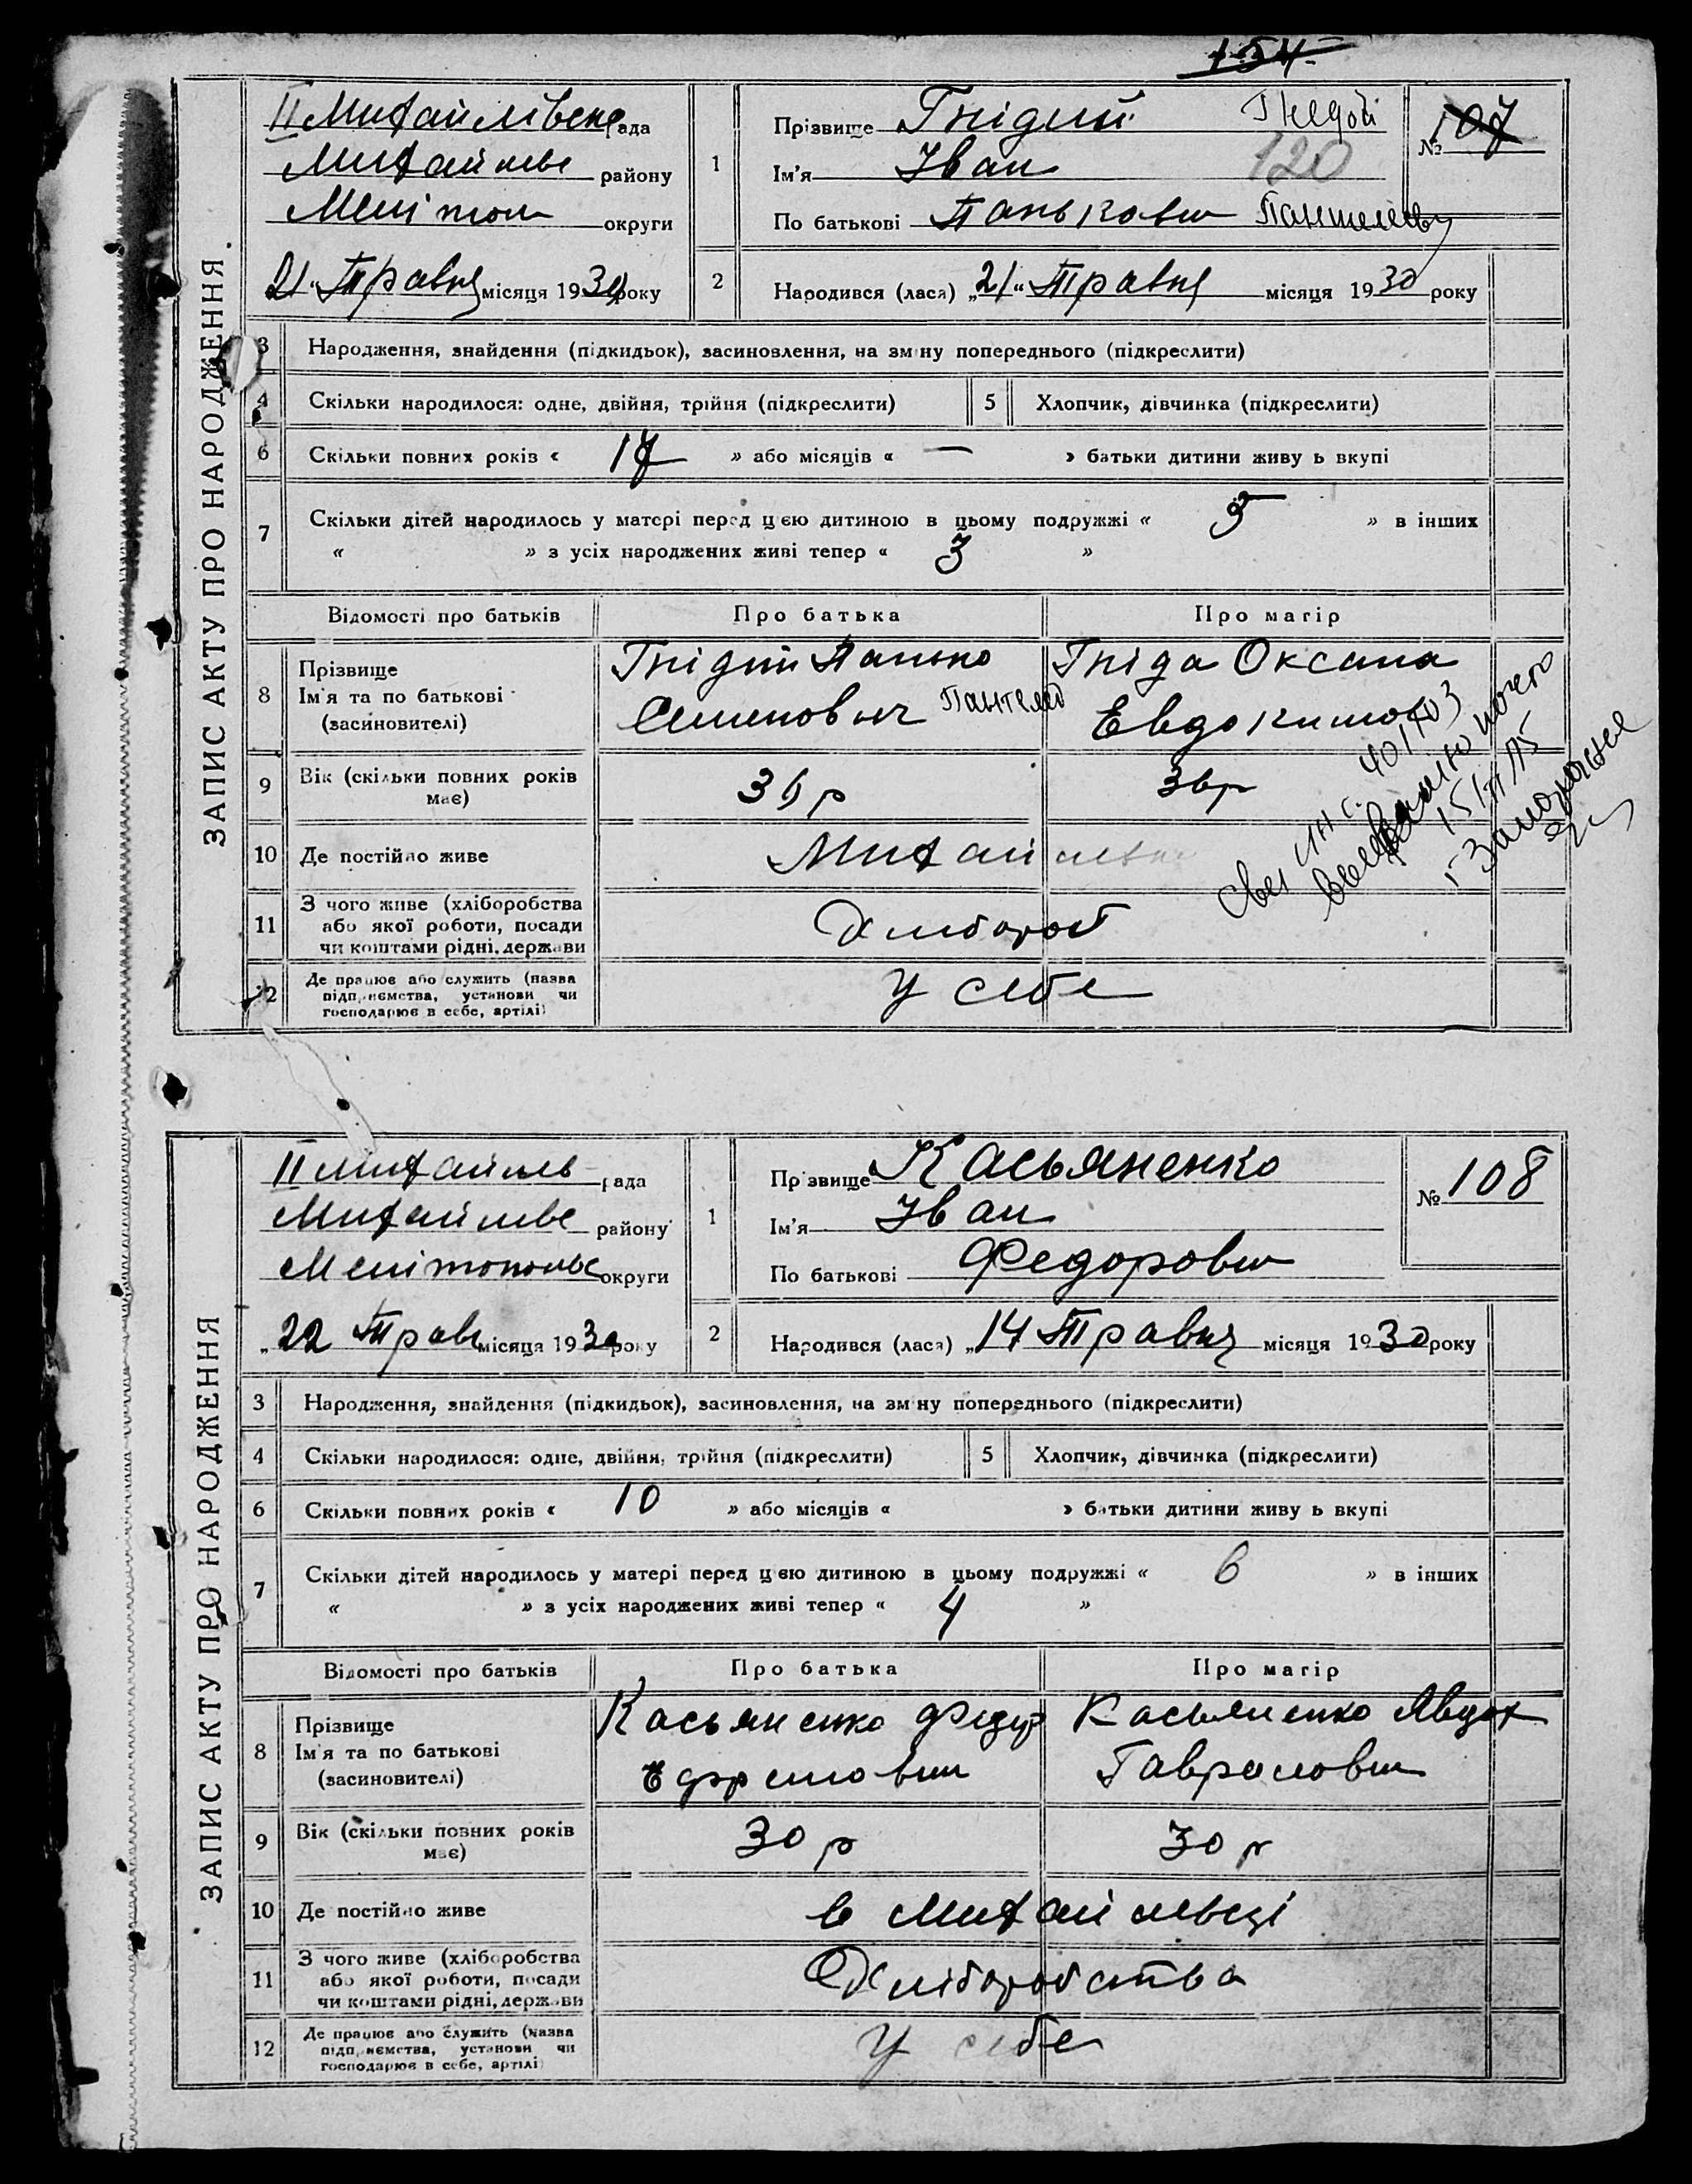 154
ЗАПИС АКТУ ПРО НАРОДЖЕННЯ.
ІІ Михайлівська рада
Михайлівс району
Мелітоп округи
21 "Травня місяця 1930 року
1
Прізвище Гнідий Гнедой
Ім'я Іван 120
По батькові Панькович Пантелеев
№ 107
2
Народився (лася) „21“ Травня місяця 1930 року
3 Народження, знайдення (підкидьок), засиновлення, на зміну попереднього (підкреслити)
4 Скільки народилося: одне, двійня, трійня (підкреслити) 5 Хлопчик, дівчинка (підкреслити)
6 Скільки повних років « 17 » або місяців « — » батьки дитини живуть вкупі
7 Скільки дітей народилось у матері перед цією дитиною в цьому подружжі « 5 » в інших
« » з усіх народжених живі тепер « 3 »
Відомості про батьків Про батька Про матір
8 Прізвище
Ім'я та по батькові
(засиновителі)
Гнідий Панько
Семенович Пантелей
Гніда Оксана
Евдокимов
9 Вік (скільки повних років має) 36 р 36р
10 Де постійно живе Михайлівка
11 З чого живе (хліборобства
або якої роботи, посади
чи коштами рідні, держави
Хлібороб
12 Де працює або служить (назва
підприємства, установи чи
господарює в себе, артілі)
У себе
401703
ЗАПИС АКТУ ПРО НАРОДЖЕННЯ
ІІ Михайлів рада
Михайлівс району
Мелітопольс округи
„22 Травн місяця 1930 року
1
Прізвище Касьяненко
Ім'я Іван
По батькові Федорович
№ 108
2
Народився (лася) „14 Травня місяця 1930 року
3 Народження, знайдення (підкидьок), засиновлення, на зміну попереднього (підкреслити)
4 Скільки народилося: одне, двійня, трійня (підкреслити) 5 Хлопчик, дівчинка (підкреслити)
6 Скільки повних років « 10 » або місяців « » батьки дитини живуть вкупі
7 Скільки дітей народилось у матері перед цією дитиною в цьому подружжі « 6 » в інших
« » з усіх народжених живі тепер « 4 »
Відомості про батьків Про батька Про матір
8 Прізвище
Ім'я та по батькові
(засиновителі)
Касьяненко Федір
Ефремович
Касьяненко Явдох
Гавриловн
9 Вік (скільки повних років має) 30 р 30 р
10 Де постійно живе в Михайлівці
11 З чого живе (хліборобства
або якої роботи, посади
чи коштами рідні, держави
Хліборобства
12 Де працює або служить (назва
підприємства, установи чи
господарює в себе, артілі)
У себе